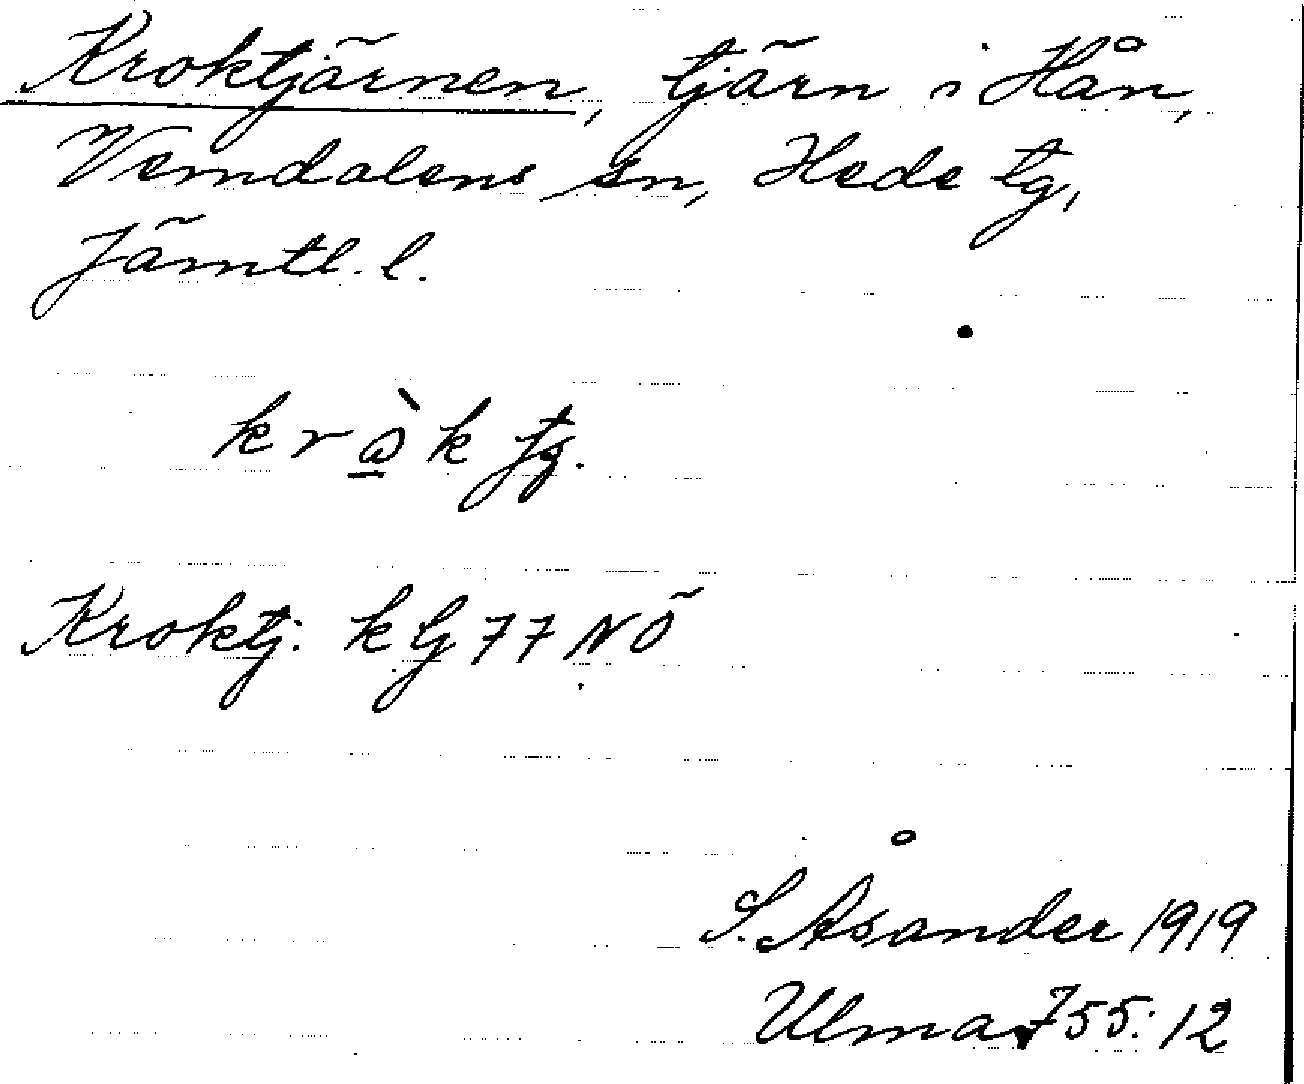 Kroktjärnen, tjärn i Hån,
Vemdalens sn, Hede tg,
Jämtl. l.
Kroktj. k G 77 NÖ
S. Åsander 1919
Ulma 755:12